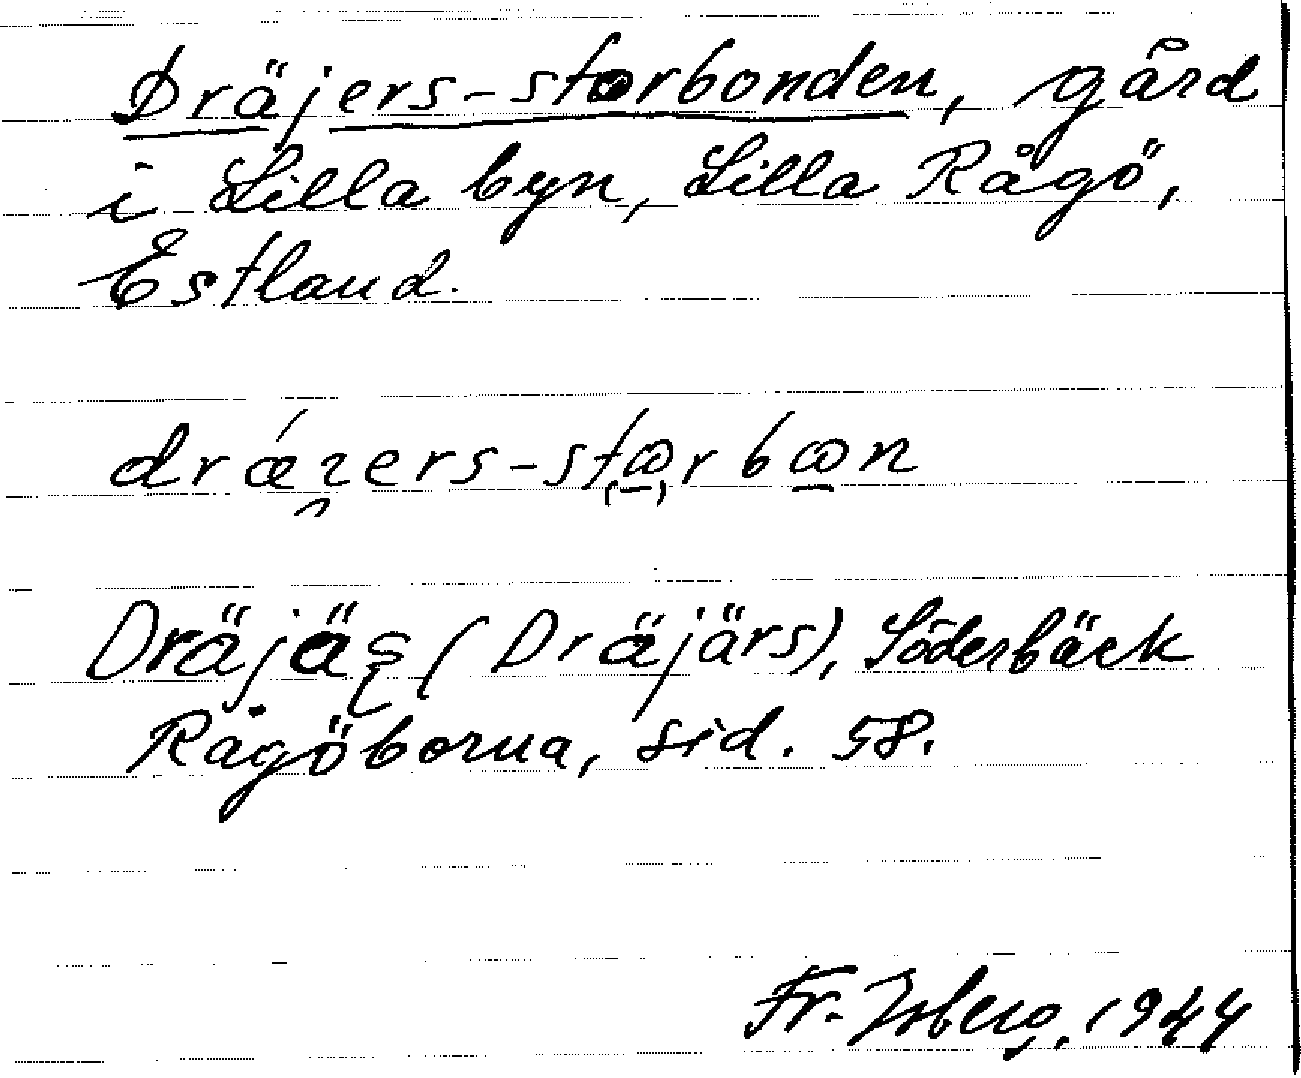 Dräjers-storbonden, gård
i Lilla byn, Lilla Rågö,
Estland.
drǽı̯ers-stꞷrbꞷn
Dräjäş (Dräjärs), Söderbäck
Rågöborna, sid. 58.
Fr. Isberg, 1944